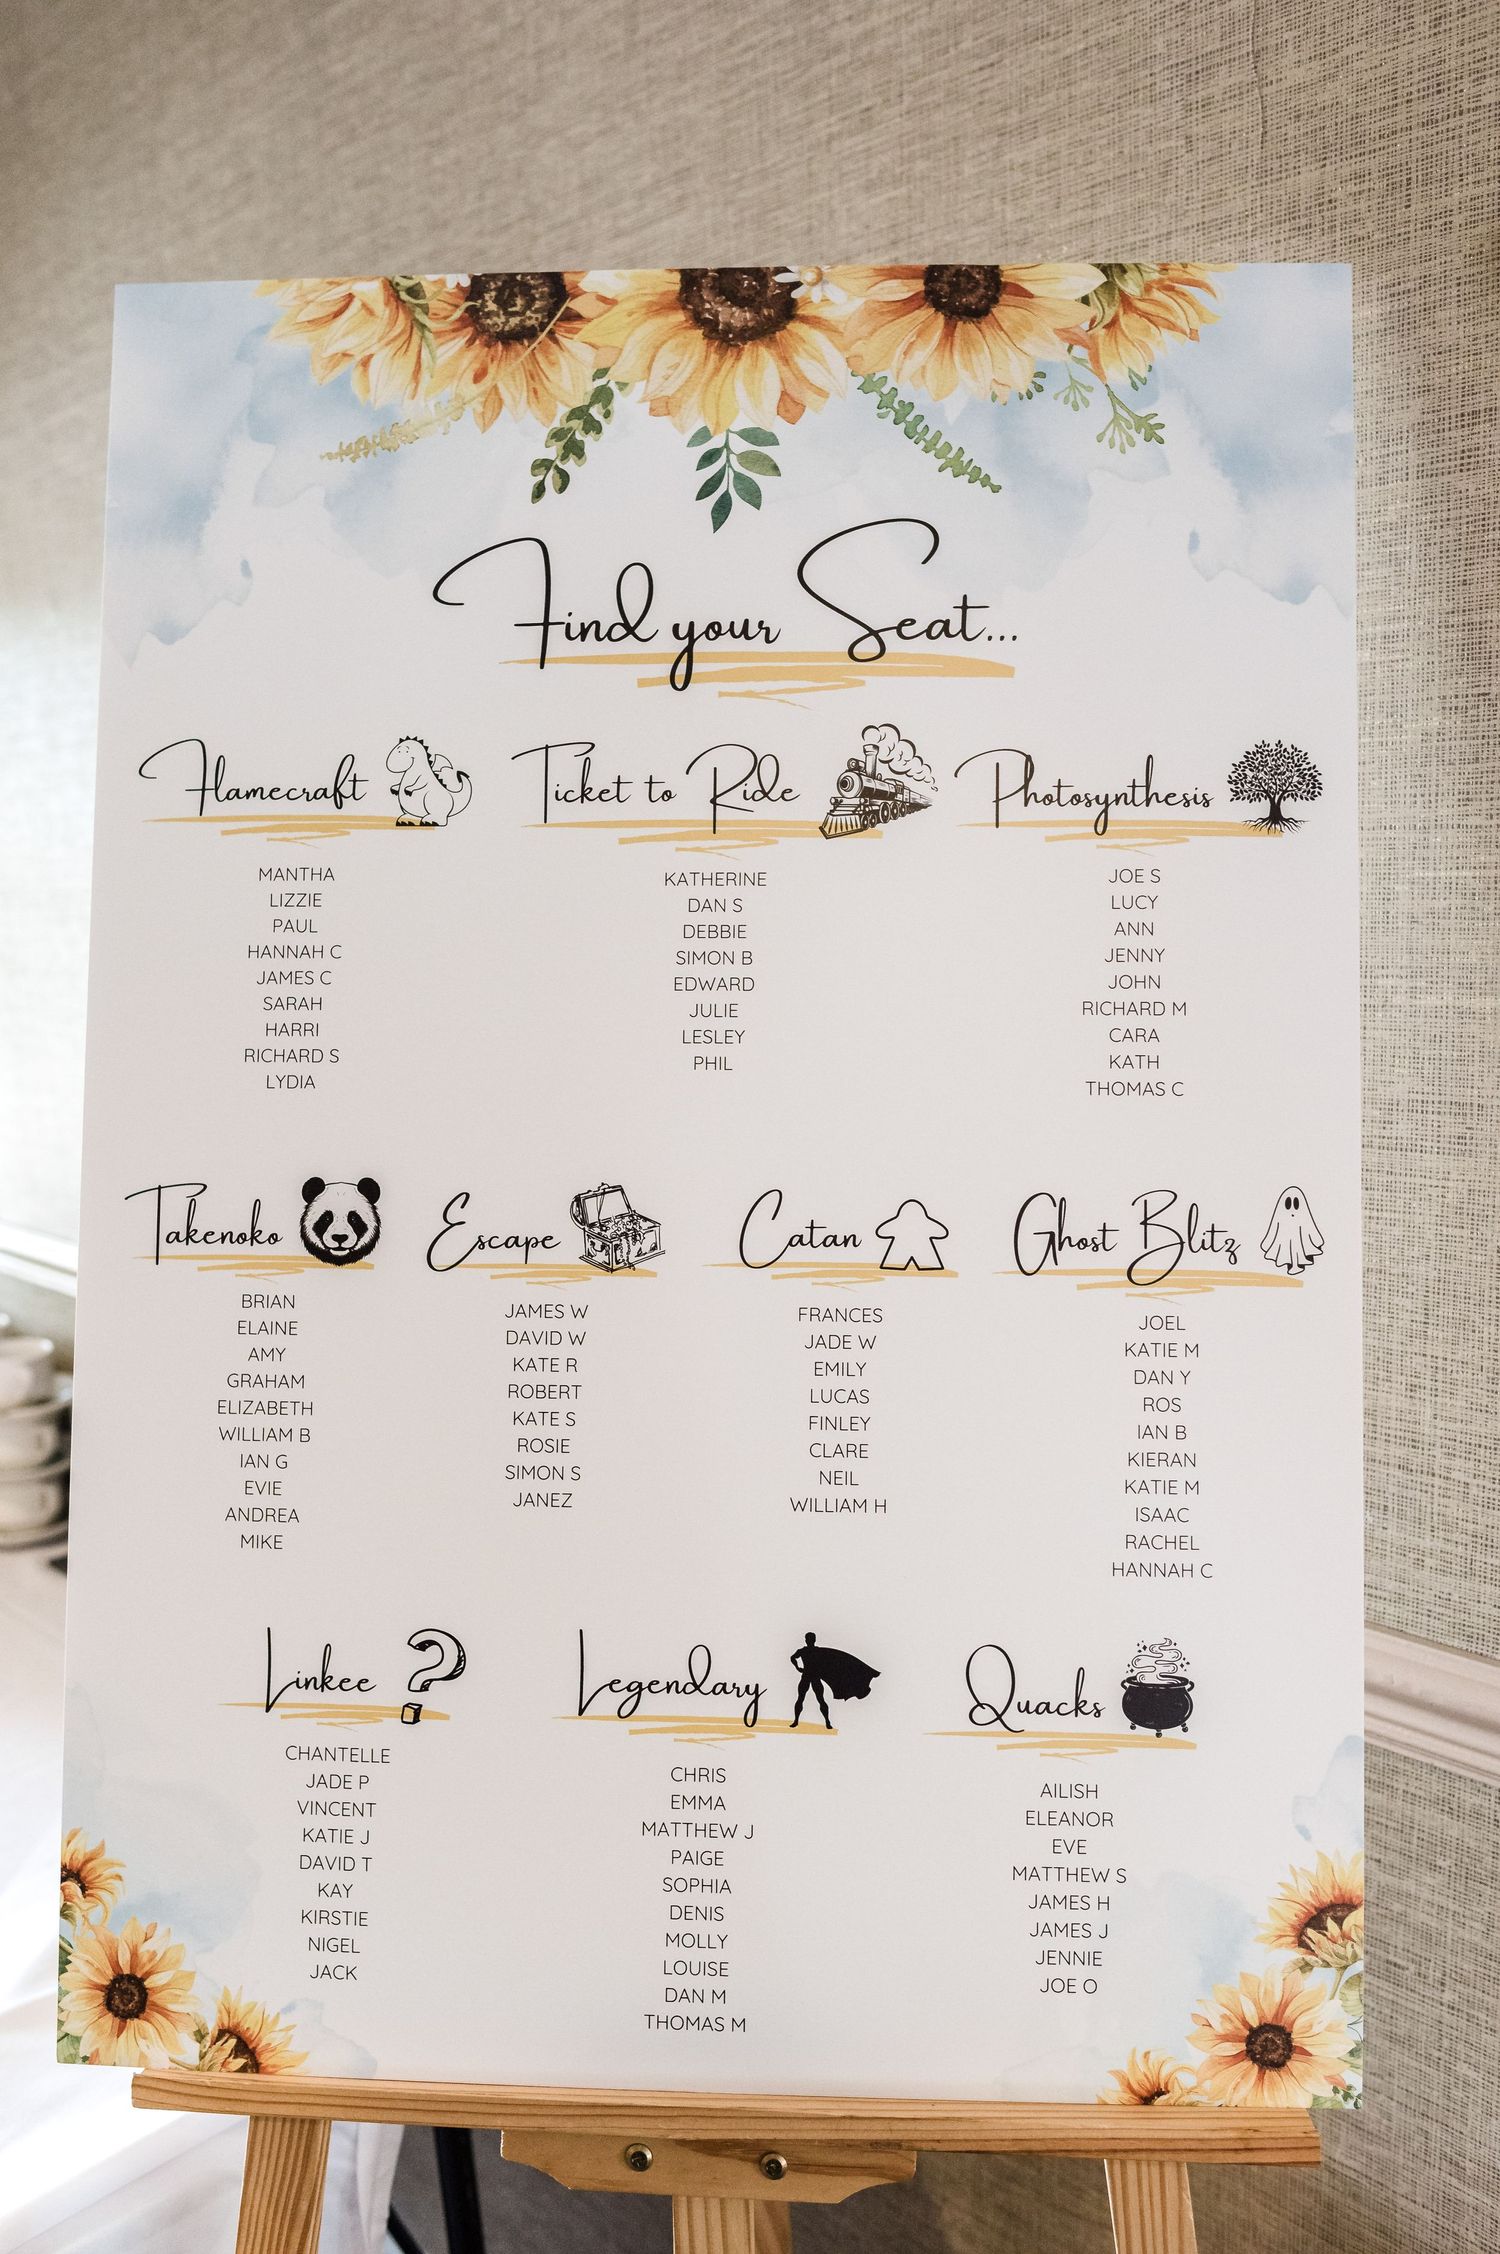 Find your Seat...
Flamecraft
MANTHA
LIZZIE
PAUL
HANNAH C
JAMES C
SARAH
HARRI
RICHARD S
LYDIA
Ticket to Ride
KATHERINE
DAN S
DEBBIE
SIMON B
EDWARD
JULIE
LESLEY
PHIL
Photosynthesis
JOE S
LUCY
ANN
JENNY
JOHN
RICHARD M
CARA
KATH
THOMAS C
Takenoko
BRIAN
ELAINE
AMY
GRAHAM
ELIZABETH
WILLIAM B
IAN G
EVIE
ANDREA
MIKE
Escape
JAMES W
DAVID W
KATE R
ROBERT
KATE S
ROSIE
SIMON S
JANEZ
Catan
FRANCES
JADE W
EMILY
LUCAS
FINLEY
CLARE
NEIL
WILLIAM H
Ghost Blitz
JOEL
KATIE M
DAN Y
ROS
IAN B
KIERAN
KATIE M
ISAAC
RACHEL
HANNAH C
Linkee
CHANTELLE
JADE P
VINCENT
KATIE J
DAVID T
KAY
KIRSTIE
NIGEL
JACK
Legendary
CHRIS
EMMA
MATTHEW J
PAIGE
SOPHIA
DENIS
MOLLY
LOUISE
DAN M
THOMAS M
Quacks
AILISH
ELEANOR
EVE
MATTHEW S
JAMES H
JAMES J
JENNIE
JOE O